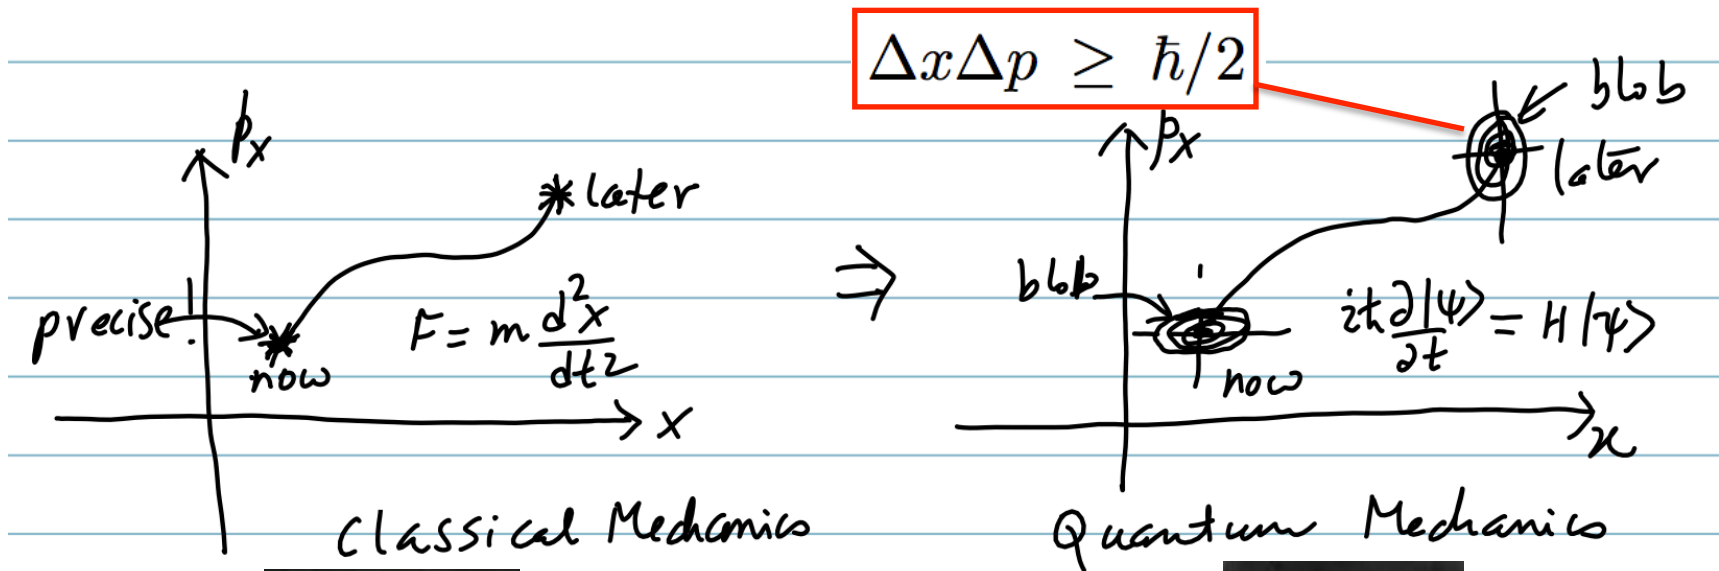 ΔxΔp ≥ ħ/2
p_x
later
precise!
now
F = m d²x/dt²
x
Classical Mechanics
⇒
p_x
blob
later
blob
now
iħ ∂|ψ⟩/∂t = H|ψ⟩
x
Quantum Mechanics